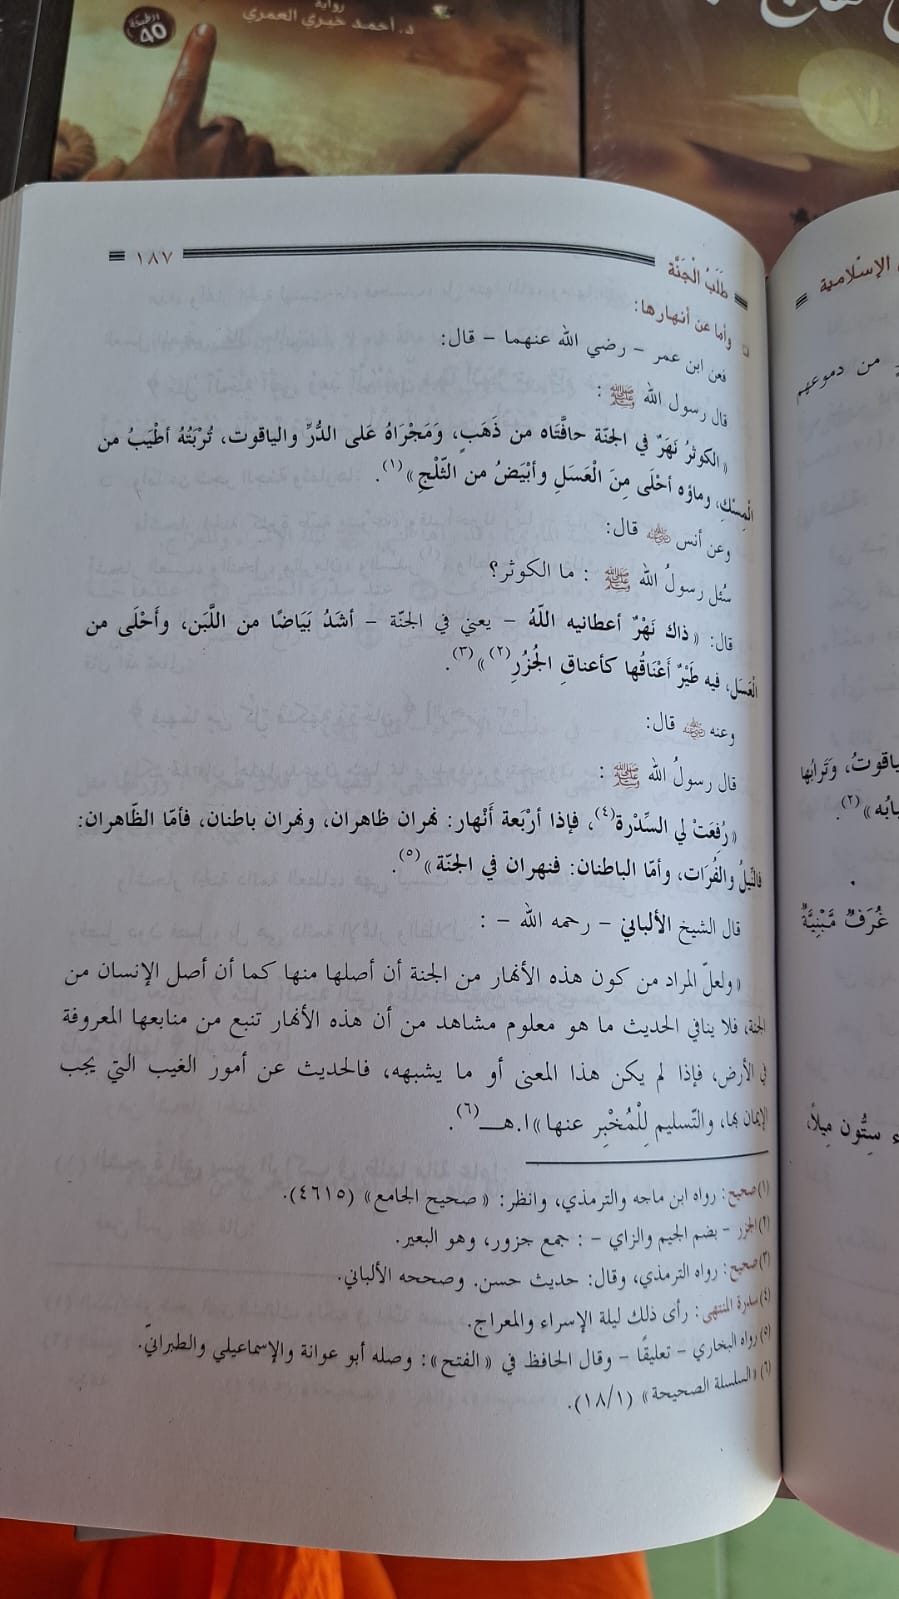 رواية
د. أحمد خيري العمري
الطبعة
40
طَلَبُ الْجَنَّة
١٨٧
وأما عن أنهارها:
فعن ابن عمر – رضي الله عنهما – قال:
قال رسول الله ﷺ :
«الكوثرُ نَهَرٌ في الجنّة حافَّتَاه من ذَهَبٍ، وَمَجْرَاهُ عَلى الدُّرِّ والياقوت، تُرْبَتُهُ أطْيَبُ من
الْمِسْكِ، وماؤه أحْلَى مِنَ الْعَسَلِ وأبْيَضُ من الثّلْجِ»(١).
وعن أنس رضي الله عنه قال:
سُئل رسولُ الله ﷺ : ما الكوثر؟
قال: «ذاك نَهْرٌ أعطانيه اللّهُ – يعني في الجنّة – أشدُ بَيَاضًا من اللَّبَن، وأَحْلَى من
الْعَسَل، فيه طَيْرٌ أَعْنَاقُها كأعناقِ الجُزُرِ(٢)»(٣).
وعنه رضي الله عنه قال:
قال رسولُ الله ﷺ :
«رُفِعَتْ لي السِّدْرة(٤)، فإذا أرْبَعة أَنْهار: نهران ظاهران، ونهران باطنان، فأمّا الظّاهران:
فالنّيلُ والفُرَات، وأمّا الباطنان: فنهران في الجنّة»(٥).
قال الشيخ الألباني – رحمه الله – :
«ولعلّ المراد من كون هذه الأنهار من الجنة أن أصلها منها كما أن أصل الإنسان من
الجنة، فلا ينافي الحديث ما هو معلوم مشاهد من أن هذه الأنهار تنبع من منابعها المعروفة
في الأرض، فإذا لم يكن هذا المعنى أو ما يشبهه، فالحديث عن أمور الغيب التي يجب
الإيمان بها، والتّسليم لِلْمُخْبِر عنها» ا.هـ(٦).
(١) صحيح: رواه ابن ماجه والترمذي، وانظر: «صحيح الجامع» (٤٦١٥).
(٢) الجزر – بضم الجيم والزاي – : جمع جزور، وهو البعير.
(٣) صحيح: رواه الترمذي، وقال: حديث حسن. وصححه الألباني.
(٤) سدرة المنتهى: رأى ذلك ليلة الإسراء والمعراج.
(٥) رواه البخاري – تعليقًا – وقال الحافظ في «الفتح»: وصله أبو عوانة والإسماعيلي والطبرانيّ.
(٦) «السلسلة الصحيحة» (١٨/١).
الإسلامية
من دموعهم
ياقوتُ، وتَرابُها
(٢).
غُرَفٌ مَّبْنِيَّةٌ
ستُّون مِيلاً،